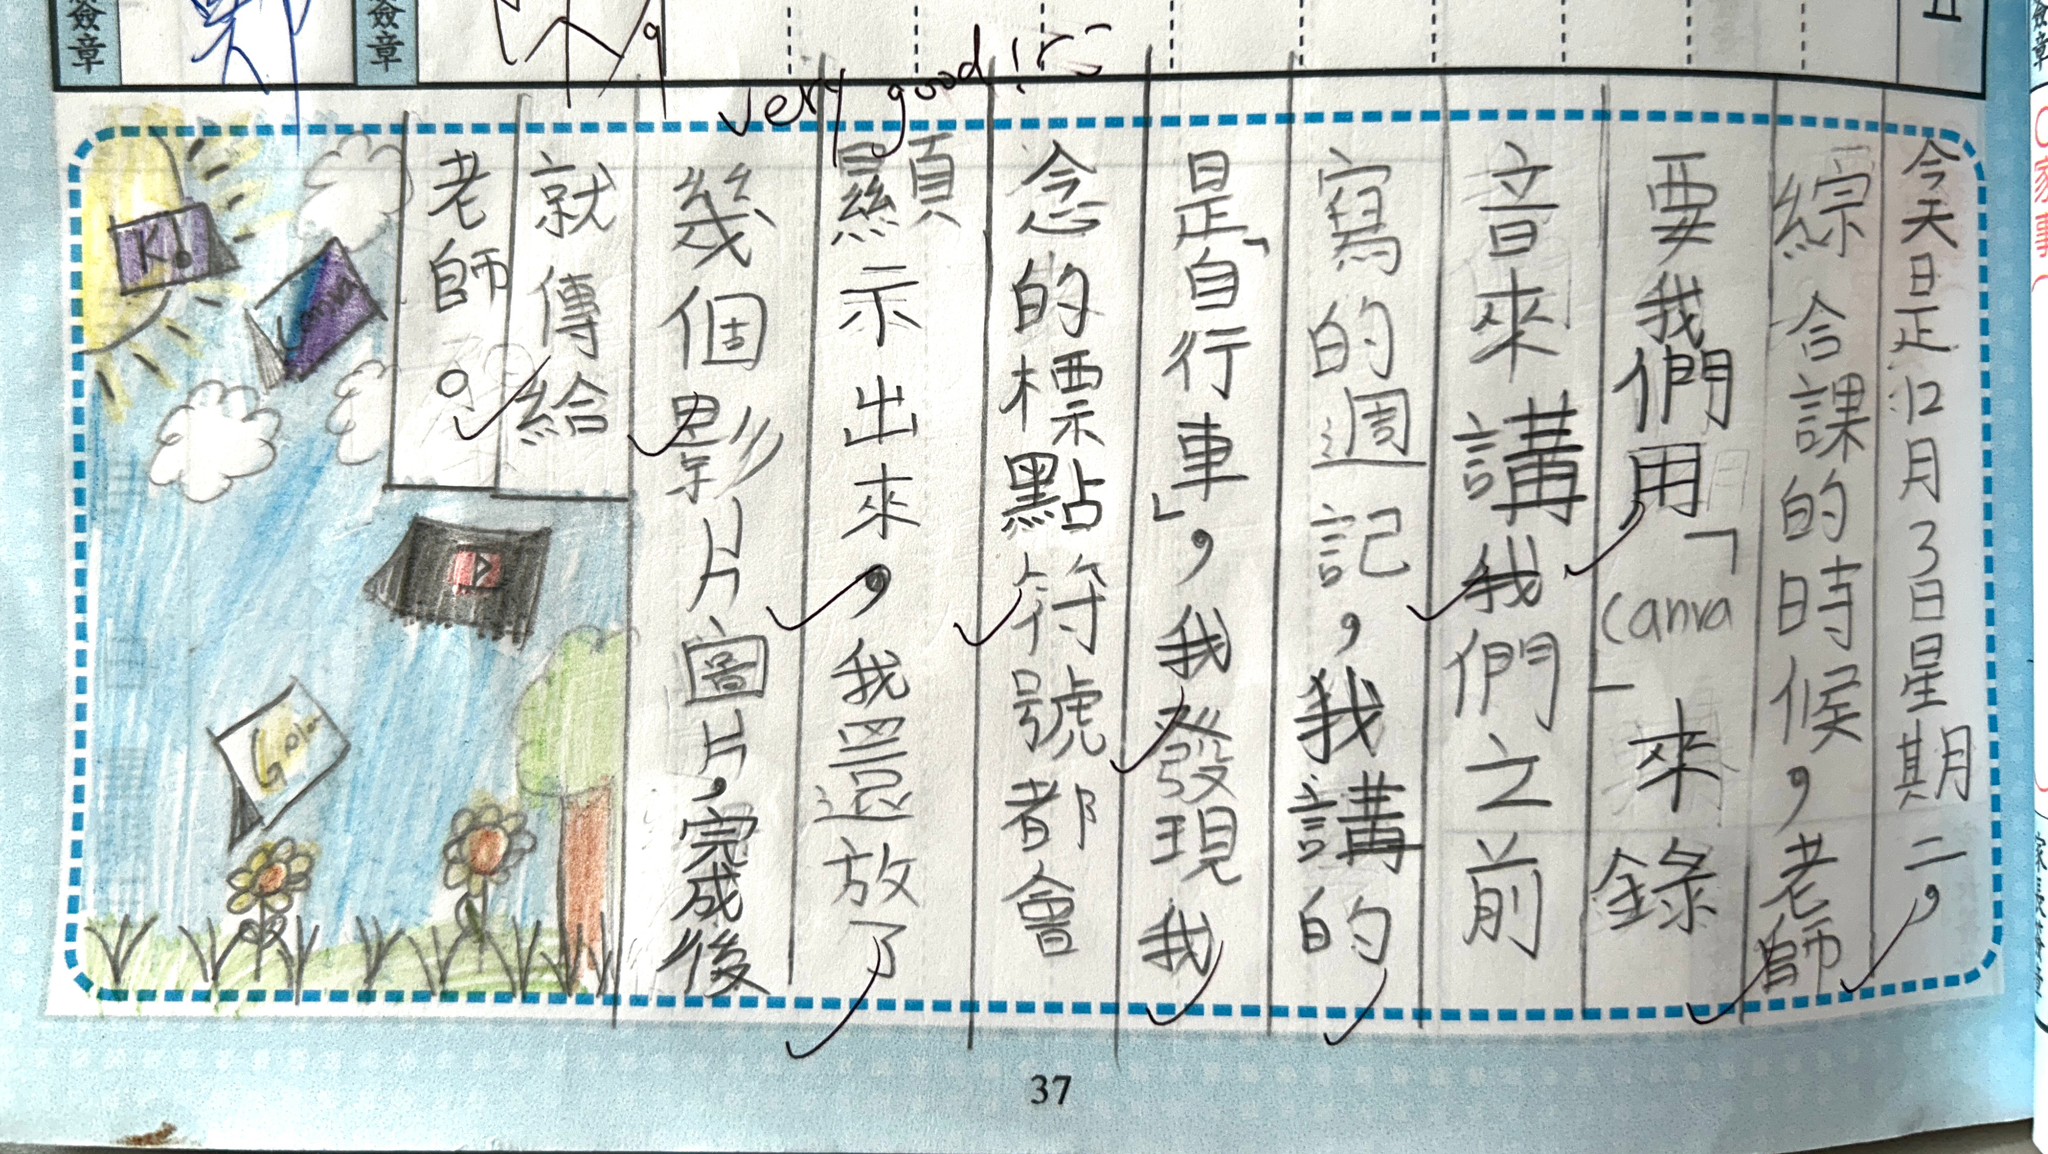 簽章
簽章
very good!
今天是12月3日星期二，
綜合課的時候，老師
要我們用「Canva」來錄
音來講我們之前
寫的週記，我講的
是「自行車」，我發現我
念的標點符號都會
顯示出來，我還放了
幾個影片圖片，完成後
就傳給
老師。
K!
Canva
37